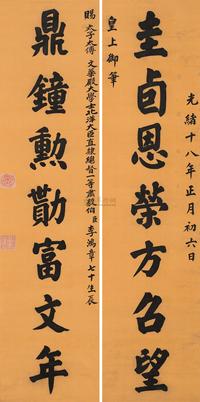 光緒十八年正月初六日
圭卣恩榮方召望
皇上御筆
賜 太子太傅 文華殿大學士北洋大臣直隸總督一等肅毅伯臣李鴻章七十生辰
鼎鐘勳勩富文年